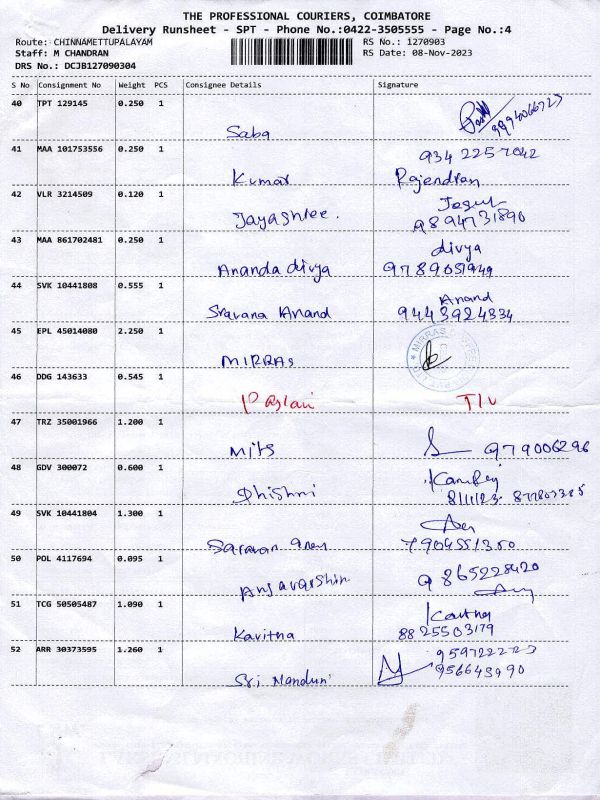 THE PROFESSIONAL COURIERS, COIMBATORE
Delivery Runsheet - SPT - Phone No.:0422-3505555 - Page No.:4
Route: CHINNAMETTUPALAYAM RS No.: 1270903
Staff: M CHANDRAN RS Date: 08-Nov-2023
DRS No.: DCJB127090304
S No Consignment No Weight PCS Consignee Details Signature
40 TPT 129145 0.250 1
Saba
41 MAA 101753556 0.250 1
934 2257042
Kumar Rajendran
42 VLR 3214509 0.120 1
Jayashree. 9894731890
43 MAA 861702481 0.250 1
divya
Ananda divya 9789051949
44 SVK 10441808 0.555 1
Anand
Sravana Anand 9443924334
45 EPL 45014080 2.250 1
MIRRAS
46 DDG 143633 0.545 1
47 TRZ 35001966 1.200 1
Mits 979006296
48 GDV 300072 0.600 1
8/11/23
49 SVK 10441804 1.300 1
7904551350
50 POL 4117694 0.095 1
9865228420
51 TCG 50505487 1.090 1
Kavitha 8825503179
52 ARR 30373595 1.260 1
956643990
Sri